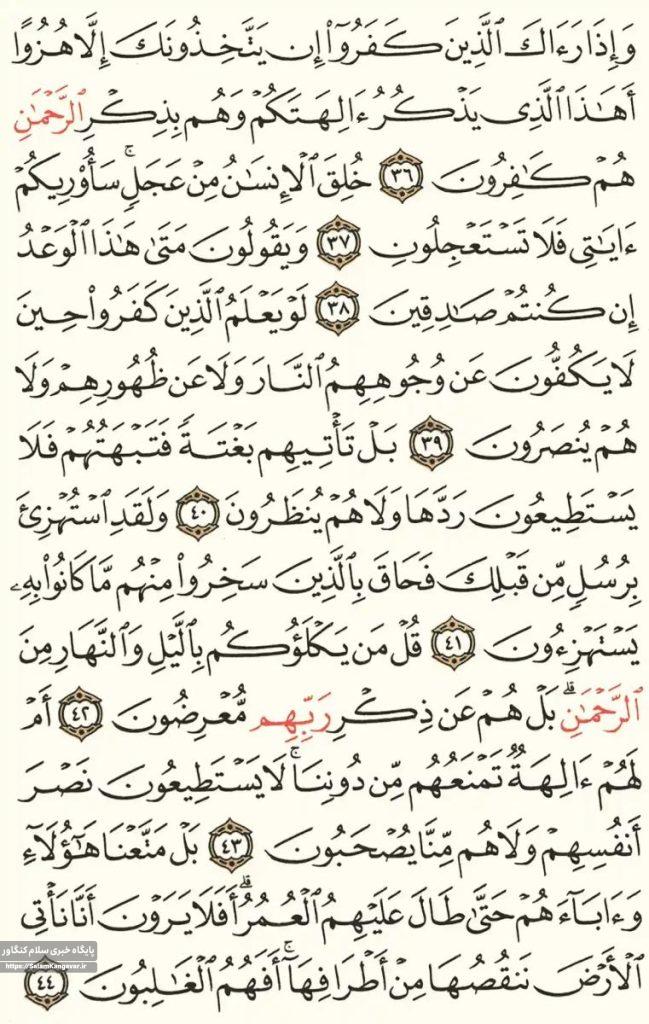 وَإِذَا رَءَاكَ ٱلَّذِينَ كَفَرُوٓاْ إِن يَتَّخِذُونَكَ إِلَّا هُزُوًا
أَهَٰذَا ٱلَّذِى يَذْكُرُ ءَالِهَتَكُمْ وَهُم بِذِكْرِ ٱلرَّحْمَٰنِ
هُمْ كَٰفِرُونَ ٣٦ خُلِقَ ٱلْإِنسَٰنُ مِنْ عَجَلٍۚ سَأُوْرِيكُمْ
ءَايَٰتِى فَلَا تَسْتَعْجِلُونِ ٣٧ وَيَقُولُونَ مَتَىٰ هَٰذَا ٱلْوَعْدُ
إِن كُنتُمْ صَٰدِقِينَ ٣٨ لَوْ يَعْلَمُ ٱلَّذِينَ كَفَرُواْ حِينَ
لَا يَكُفُّونَ عَن وُجُوهِهِمُ ٱلنَّارَ وَلَا عَن ظُهُورِهِمْ وَلَا
هُمْ يُنصَرُونَ ٣٩ بَلْ تَأْتِيهِم بَغْتَةً فَتَبْهَتُهُمْ فَلَا
يَسْتَطِيعُونَ رَدَّهَا وَلَا هُمْ يُنظَرُونَ ٤٠ وَلَقَدِ ٱسْتُهْزِئَ
بِرُسُلٍ مِّن قَبْلِكَ فَحَاقَ بِٱلَّذِينَ سَخِرُواْ مِنْهُم مَّا كَانُواْ بِهِۦ
يَسْتَهْزِءُونَ ٤١ قُلْ مَن يَكْلَؤُكُم بِٱلَّيْلِ وَٱلنَّهَارِ مِنَ
ٱلرَّحْمَٰنِۗ بَلْ هُمْ عَن ذِكْرِ رَبِّهِم مُّعْرِضُونَ ٤٢ أَمْ
لَهُمْ ءَالِهَةٌ تَمْنَعُهُم مِّن دُونِنَاۚ لَا يَسْتَطِيعُونَ نَصْرَ
أَنفُسِهِمْ وَلَا هُم مِّنَّا يُصْحَبُونَ ٤٣ بَلْ مَتَّعْنَا هَٰٓؤُلَآءِ
وَءَابَآءَهُمْ حَتَّىٰ طَالَ عَلَيْهِمُ ٱلْعُمُرُۗ أَفَلَا يَرَوْنَ أَنَّا نَأْتِى
ٱلْأَرْضَ نَنقُصُهَا مِنْ أَطْرَافِهَآۚ أَفَهُمُ ٱلْغَٰلِبُونَ ٤٤
پایگاه خبری سلام کنگاور
https://SalamKangavar.ir